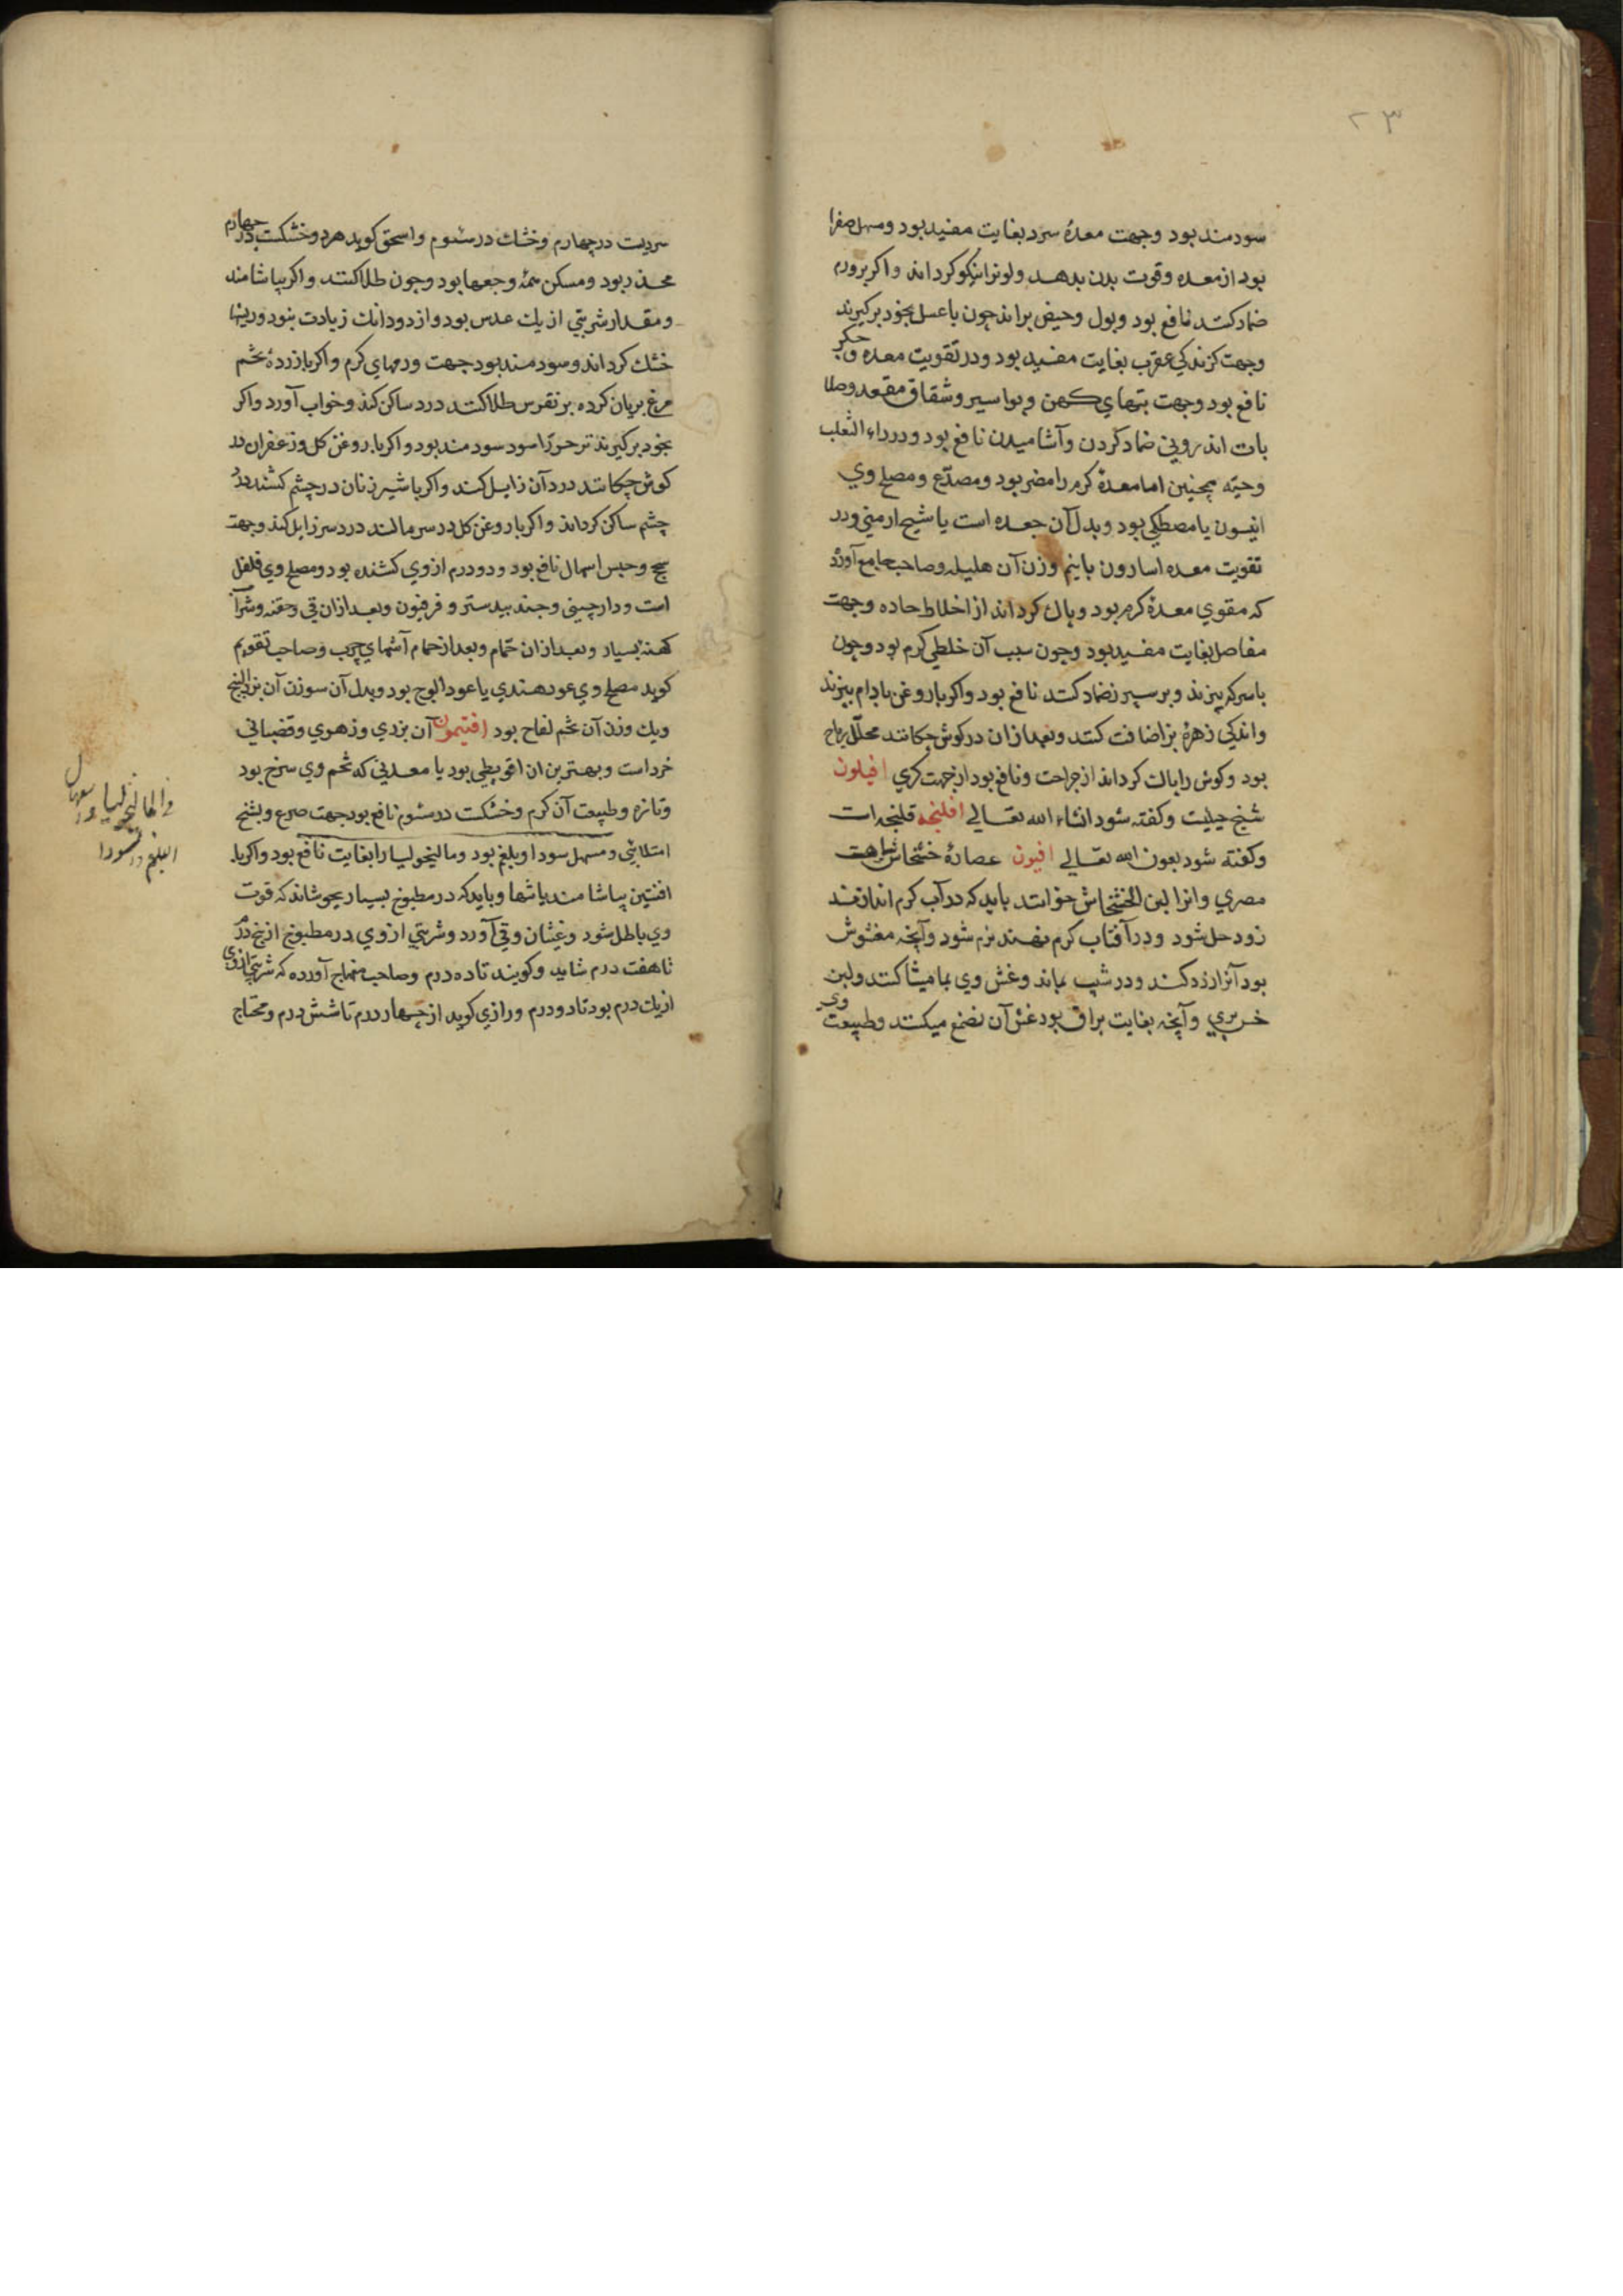 ۲۳
سودمند بود وجهت معدهٔ سرد بغایت مفید بود ومسهل صفرا
بود از معده وقوت بدن بدهد ولونرا نیکو کرداند واکر برورم
ضماد کنند نافع بود وبول وحیض براند چون با عسل بخود برکیرند
وجهت کزندکی عقرب بغایت مفید بود ودر تقویت معده وجکر
نافع بود وجهت تبهای کهن وبواسیر وشقاق مقعد وصلا
بات اندرونی ضماد کردن وآشامیدن نافع بود ودرداء الثعلب
وحیّه همچنین اما معدهٔ کرم را مضر بود ومصدّع ومصلح وی
انیسون یا مصطکی بود وبدل آن جعده است یا شیح ارمنی ودر
تقویت معده اسارون با نیم وزن آن هلیله وصاحب جامع آورد
که مقوی معدهٔ کرم بود وپاك کرداند از اخلاط حاده وجهت
مفاصل بغایت مفید بود وچون سبب آن خلطی کرم بود وچون
باسرکه بپزند وبر سپرز ضماد کنند نافع بود واکر با روغن بادام بپزند
واندکی زهرهٔ بز اضافت کنند وبعد ازان درکوش چکانند محلّل ریاح
بود وکوش را پاك کرداند از جراحت ونافع بود از جهت کری افیلون
شیح جبلیت وکفته شود انشاء الله تعالی افلنجه فلنجه است
وکفته شود بعون الله تعالی افیون عصارهٔ خشخاش سیاهست
مصری وانرا لبن الخشخاش خوانند باید که در آب کرم اندازند
زود حل شود ودر آفتاب کرم نهند نرم شود وآنچه مغشوش
بود آنرا زرد کند ودر شب بماند وغش وی بمامیثا کنند ولبن
خس بری وآنچه بغایت براق بود غش آن بصمغ میکنند وطبیعت وی
سردیت درچهارم وخشك در سئوم واسحق کوید هردو خشکست در چهارم
مخدر بود ومسکن همهٔ وجعها بود وچون طلا کنند واکر بیاشامند
ومقدار شربتی از یك عدس بود واز دو دانك زیادت نبود وریشها
خشك کرداند وسودمند بود جهت ورمهای کرم واکر با زردهٔ تخم
مرغ بریان کرده بر نقرس طلا کنند درد ساکن کند وخواب آورد واکر
بخود برکیرند سود مند بود واکر با روغن کل وزعفران در
کوش چکانند درد آن زایل کند واکر با شیر زنان در چشم کشند درد
چشم ساکن کرداند واکر با روغن کل در سر مالند درد سر زایل کند وجهت
سحج وحبس اسهال نافع بود ودو درم از وی کشنده بود ومصلح وی فلفل
است ودارچینی وجند بیدستر وفرفیون وبعد ازان قی وحقنه وشراب
کهنهٔ بسیار وبعد ازان حمّام وبعد از حمام آشهای چرب وصاحب تقویم
کوید مصلح وی عود هندی یا عود الوج بود وبدل آن سه وزن آن بزر البنج
ویك وزن آن تخم لفاح بود افتیمون آن بزری وزهری وقضبانی
خرد است وبهترین ان اقریطی بود یا مقدسی که تخم وی سرخ بود
وتازه وطبیعت آن کرم وخشکست درسئوم نافع بود جهت صرع وتشنج
امتلایی ومسهل سودا وبلغم بود ومالیخولیا را بغایت نافع بود واکر با
افنتین بیاشامند یا تنها وباید که در مطبوخ بسیار نجوشاند که قوت
وی باطل شود وغثیان وقی آورد وشربتی از وی در مطبوخ از پنج درم
تا هفت درم شاید وکویند تا ده درم وصاحب منهاج آورده که شربتی ازوی
از یك درم بود تا دو درم ورازی کوید از چهار درم تا شش درم ومحتاج